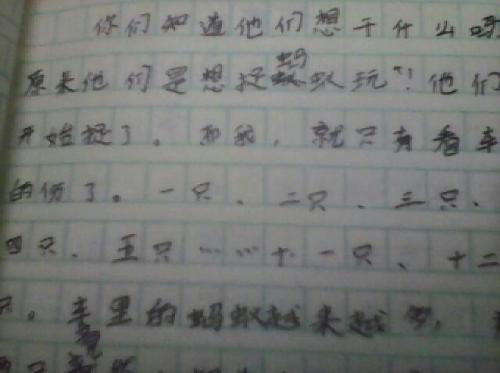 你们知道他们想干什么吗
原来他们是想捉蚂蚁玩"！他们
开始捉了。而我，就只有看车
的份了。一只、二只、三只、
四只、五只……十一只、十二
只。车里的蚂蚁越来越多，